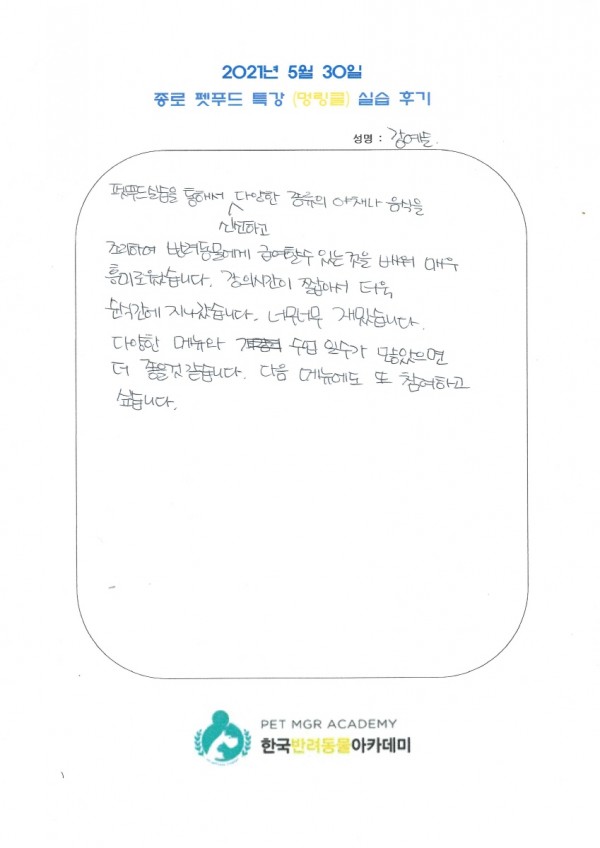 2021년 5월 30일
종로 펫푸드 특강 (멍링클) 실습 후기
성명 : 강예은
펫푸드실습을 통해서 다양한 종류의 야채나 음식을
신선하고
조리하여 반려동물에게 급여할수 있는것을 배워 매우
흥미로웠습니다. 강의시간이 짧아서 더욱
순식간에 지나갔습니다. 너무너무 재밌습니다.
다양한 메뉴와 수업 일수가 많았으면
더 좋을것 같습니다. 다음 메뉴에도 또 참여하고
싶습니다.
PET MGR ACADEMY
한국반려동물아카데미